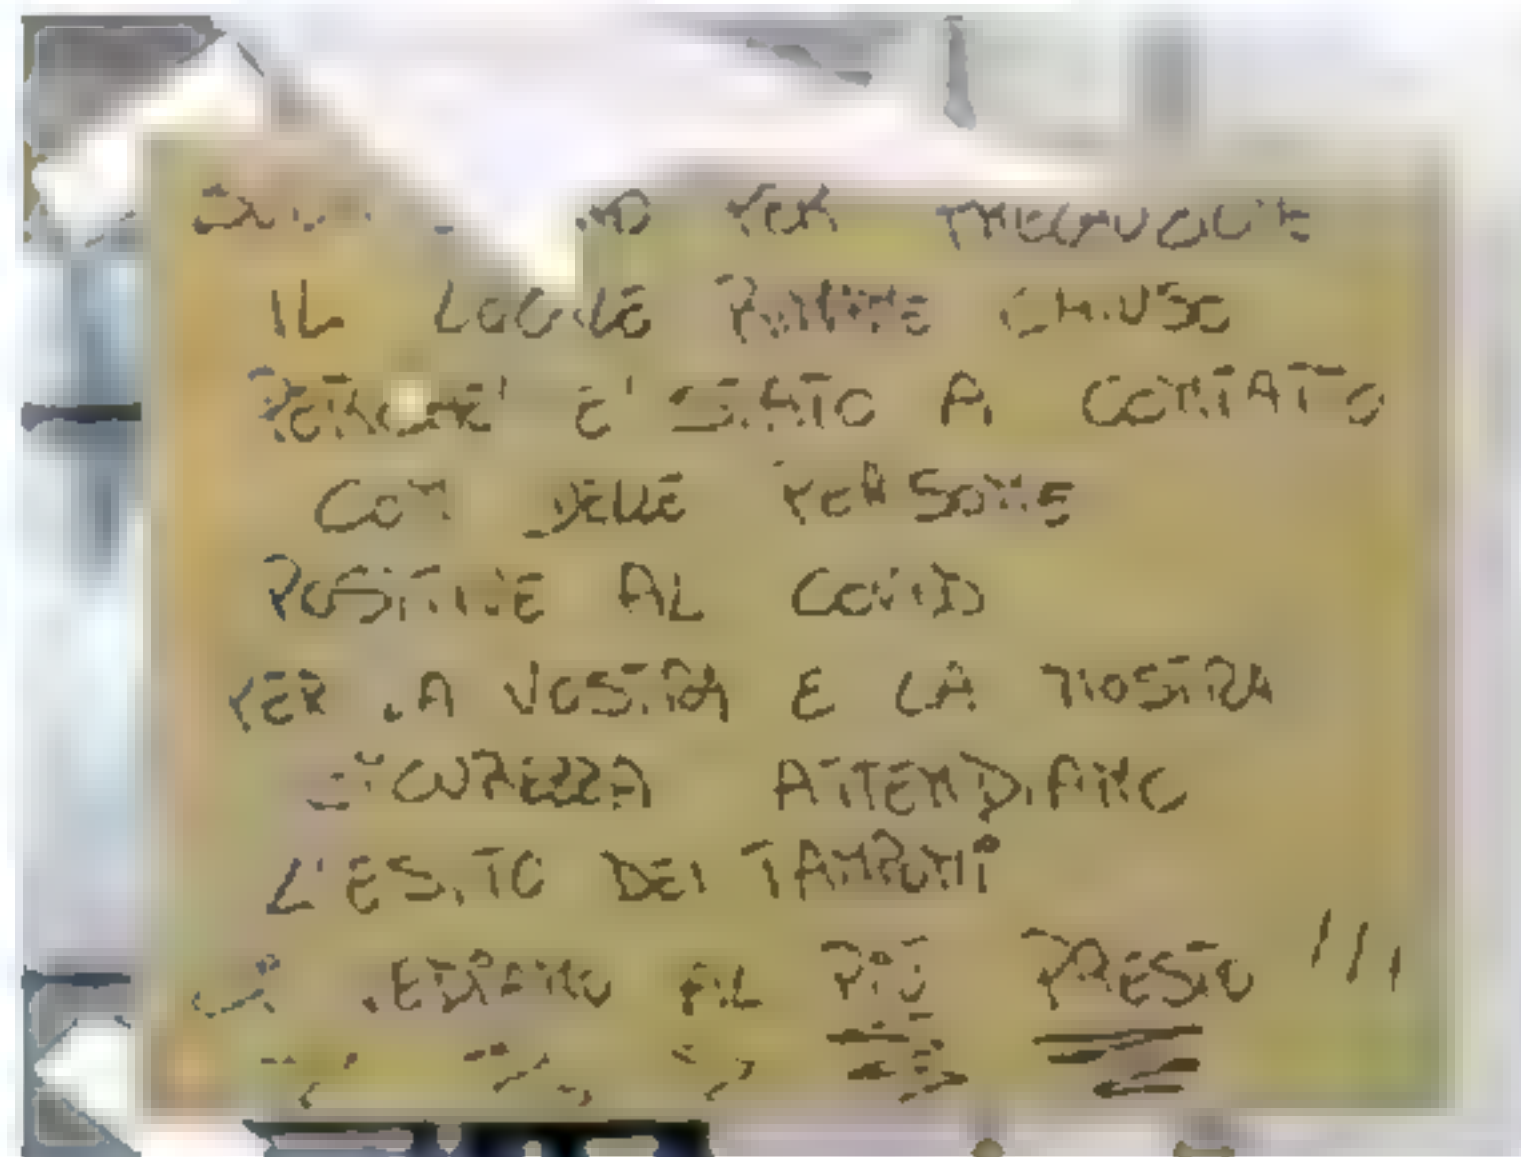 PER
IL LOCALE RIMANE CHIUSO
PERCHE' E' STATO A CONTATTO
CON DELLE PERSONE
POSITIVE AL COVID
PER LA VOSTRA E LA NOSTRA
SICUREZZA ATTENDIAMO
L'ESITO DEI TAMPONI
CI VEDIAMO AL PIÙ PRESTO !!!